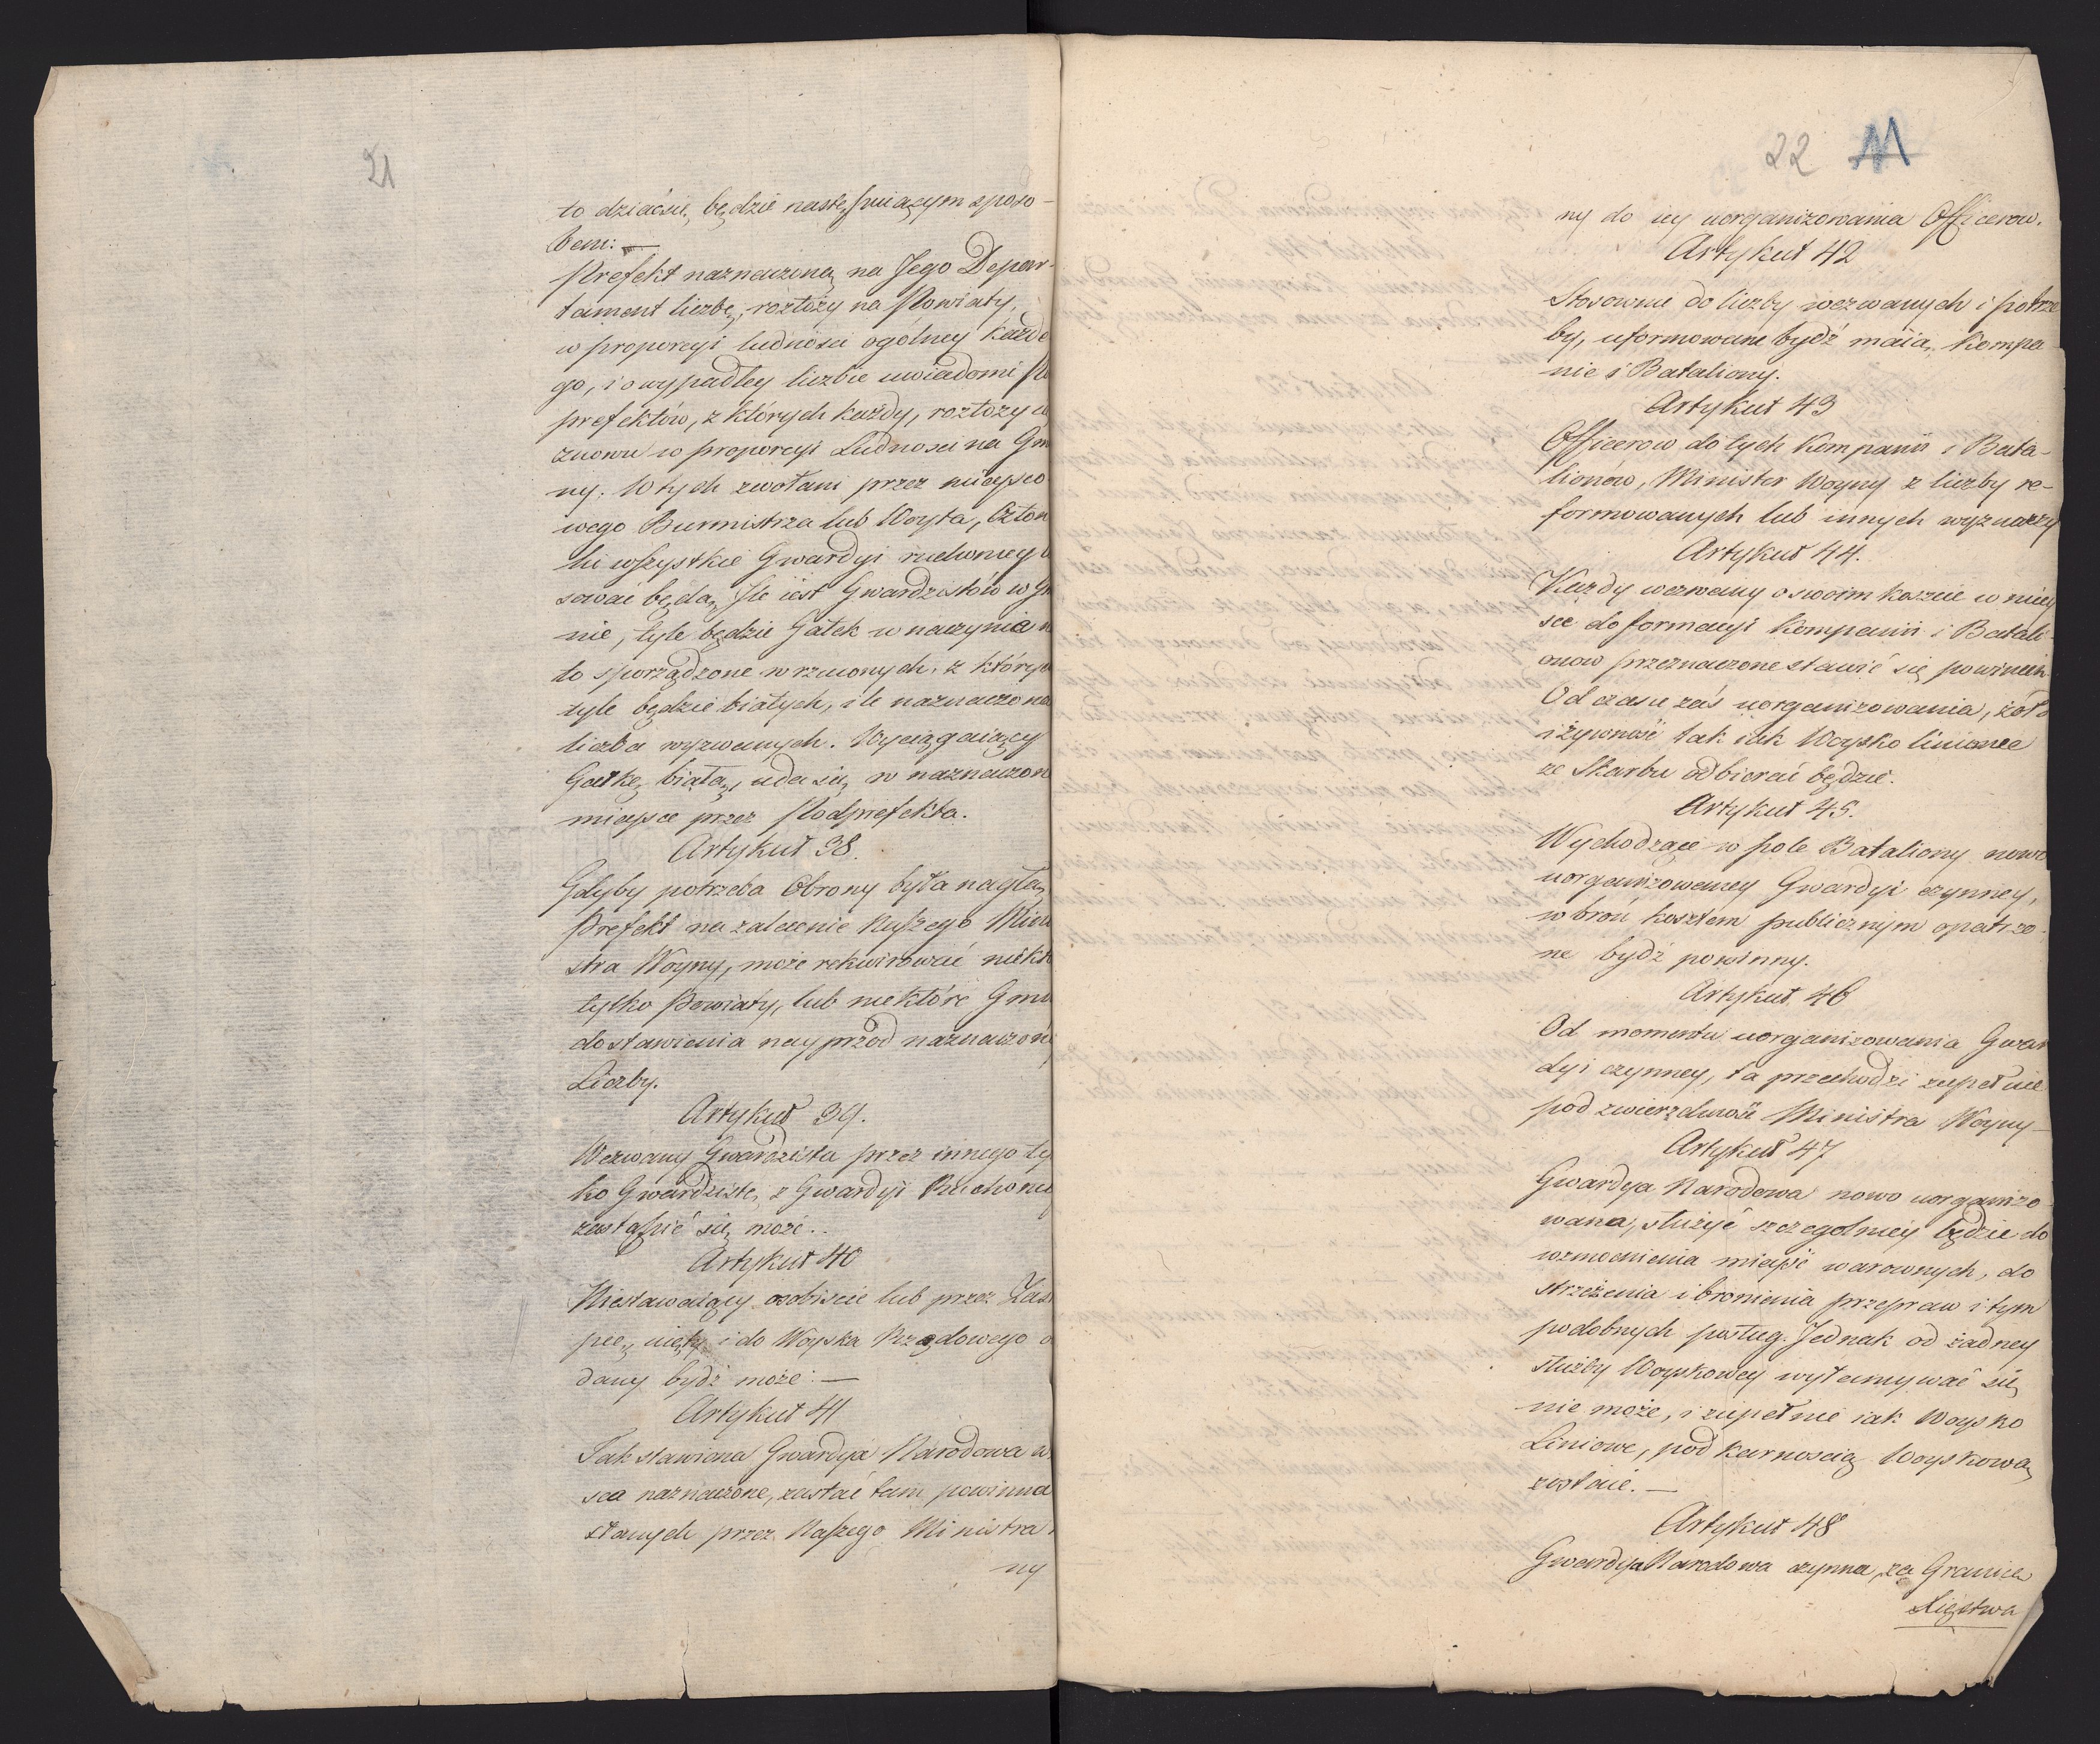 21
to dziać się, będzie następuiącym sposo-
bem: —
Prefekt naznaczoną na Jego Depar-
tament liczbę, rozłoży na Powiaty,
w proporcyi ludności ogólney każde
go, i o wypadłey liczbie uwiadomi Po
prefektów, z których każdy, rozłoży
znowu w proporcyi Ludności na Gm
ny. W tych zwołani przez mieysco
wego Burmistrza lub Woyta, Człon
ki wszystkie Gwardyi ruchomey
sować będą, Ile iest Gwardzistów w Gm
nie, tyle będzie Gałek w naczynia n
to sporządzone wrzuconych, z który
tyle będzie białych, ile naznaczona
liczba wyzwanych. Wyciągaiący
Gałkę białą, uda się w naznaczon
mieysce przez Podprefekta.
Artykuł 38.
Gdyby potrzeba Obrony była nagłą,
Prefekt na zalecenie Naszego Mini
stra Woyny, może rekwirować niekt
tylko Powiaty, lub niektóre Gmi
do stawienia nayprzód naznaczoné
Liczby.
Artykuł 39.
Wezwany Gwardzista przez innego ty
ko Gwardzistę, z Gwardyi Ruchomé
zastąpić się może..
Artykuł 40
Niestawaiący osobiście lub przez Zas
pcę, uięty i do Woyska Rządowego o
dany bydź może: —
Artykuł 41
Tak stawiona Gwardyja Narodowa w
sca naznaczone, zastać tam powinna
słanych przez Naszego Ministra
ny
22 11
ny do iey uorganizowania Officerow.
Artykuł 42
Stosownie do liczby wezwanych i potrze
by, uformowane bydź máią, Kompa
nie i Bataliony.
Artykuł 43
Officerow do tych Kompanii i Bata-
lionów, Minister Woyny z liczby re-
formowanych lub innych wyznaczy
Artykuł 44.
Każdy wezwany o swoim koszcie w miey
sce do formacyi Kompanii i Batali
onow przeznaczone stawić się powinien
Od czasu zaś uorganizowania, żołd
i żywność tak iak Woysko liniowe
ze Skarbu odbierać będzie.
Artykuł 45.
Wychodzące w pole Bataliony nowo
uorganizowaney Gwardyi czynney,
w broń kosztem publicznym opatrzo-
ne bydź powinny.
Artykuł 46
Od momentu uorganizowania Gwar
dyi czynney, ta przechodzi zupełnie
pod zwierzchność Ministra Woyny—
Artykuł 47
Gwardya Narodowa nowo uorganizo
wana, służyć szczególniey będzie do
wzmocnienia mieysc warownych, do
strzeżenia i bronienia przepraw i tym
podobnych posług. Jednak od żadney
służby Woyskowey wyłamywać się
nie może, i zupełnie iak Woysko
Liniowe, pod karnoscią Woyskową
zostaié. —
Artykuł 48
Gwardya Narodowa czynna, za Granice
Xięstwa